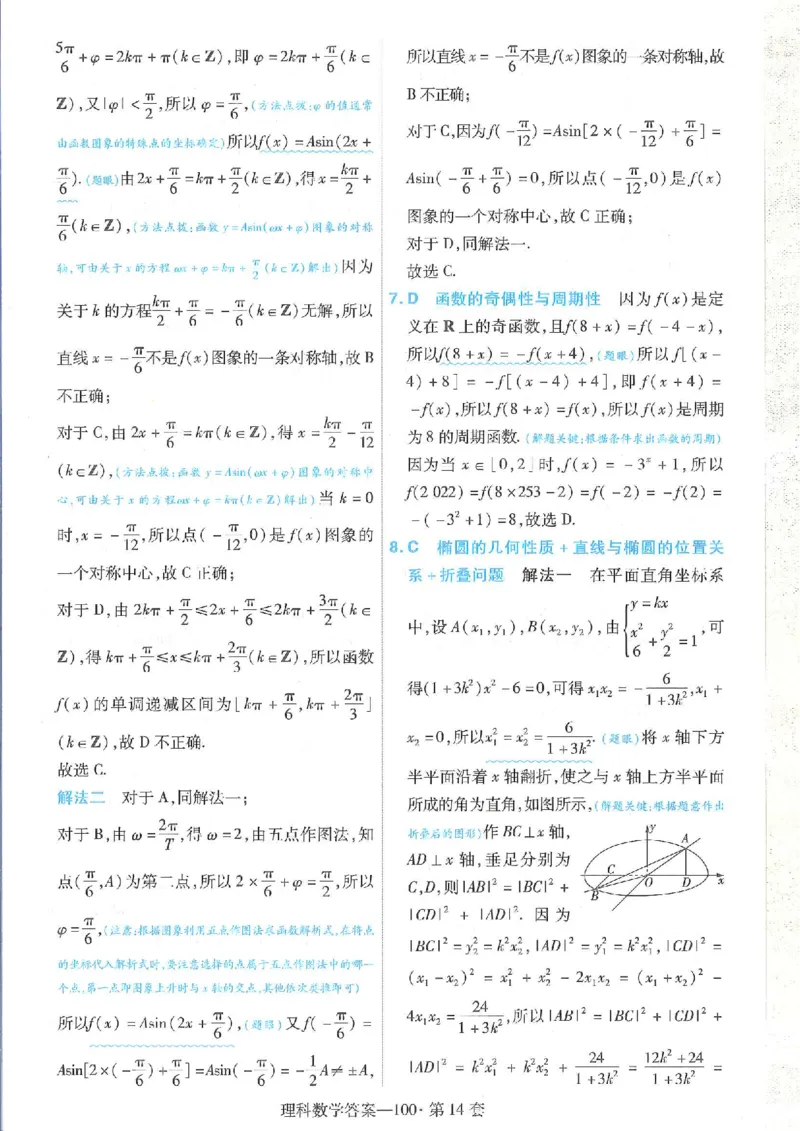 5π/6+φ=2kπ+π(k∈Z),即 φ=2kπ+π/6(k∈
Z),又|φ|<π/2,所以 φ=π/6,(方法点拨:φ的值通常
由函数图象的特殊点的坐标确定)所以f(x)=Asin(2x+
π/6).(题眼)由2x+π/6=kπ+π/2(k∈Z),得x=kπ/2+
π/6(k∈Z),(方法点拨:函数y=Asin(ωx+φ)图象的对称
轴,可由关于x的方程ωx+φ=kπ+π/2(k∈Z)解出)因为
关于k的方程kπ/2+π/6=-π/6(k∈Z)无解,所以
直线x=-π/6不是f(x)图象的一条对称轴,故B
不正确;
对于C,由2x+π/6=kπ(k∈Z),得x=kπ/2-π/12
(k∈Z),(方法点拨:函数y=Asin(ωx+φ)图象的对称中
心,可由关于x的方程ωx+φ=kπ(k∈Z)解出)当k=0
时,x=-π/12,所以点(-π/12,0)是f(x)图象的
一个对称中心,故C正确;
对于D,由2kπ+π/2≤2x+π/6≤2kπ+3π/2(k∈
Z),得kπ+π/6≤x≤kπ+2π/3(k∈Z),所以函数
f(x)的单调递减区间为[kπ+π/6,kπ+2π/3]
(k∈Z),故D不正确.
故选C.
解法二 对于A,同解法一;
对于B,由ω=2π/T,得ω=2,由五点作图法,知
点(π/6,A)为第二点,所以2×π/6+φ=π/2,所以
φ=π/6,(注意:根据图象利用五点作图法求函数解析式,在将点
的坐标代入解析式时,要注意选择的点属于五点作图法中的哪一
个点,第一点即图象上升时与x轴的交点,其他依次类推即可)
所以f(x)=Asin(2x+π/6),(题眼)又f(-π/6)=
Asin[2×(-π/6)+π/6]=Asin(-π/6)=-1/2A≠±A,
所以直线x=-π/6不是f(x)图象的一条对称轴,故
B不正确;
对于C,因为f(-π/12)=Asin[2×(-π/12)+π/6]=
Asin(-π/6+π/6)=0,所以点(-π/12,0)是f(x)
图象的一个对称中心,故C正确;
对于D,同解法一.
故选C.
7.D 函数的奇偶性与周期性 因为f(x)是定
义在R上的奇函数,且f(8+x)=f(-4-x),
所以f(8+x)=-f(x+4),(题眼)所以f[(x-
4)+8]=-f[(x-4)+4],即f(x+4)=
-f(x),所以f(8+x)=f(x),所以f(x)是周期
为8的周期函数.(解题关键:根据条件求出函数的周期)
因为当x∈[0,2]时,f(x)=-3ˣ+1,所以
f(2 022)=f(8×253-2)=f(-2)=-f(2)=
-(-3²+1)=8,故选D.
8.C 椭圆的几何性质+直线与椭圆的位置关
系+折叠问题 解法一 在平面直角坐标系
中,设A(x₁,y₁),B(x₂,y₂),由{y=kx x²/6+y²/2=1,可
得(1+3k²)x²-6=0,可得x₁x₂=-6/(1+3k²),x₁+
x₂=0,所以x₁²=x₂²=6/(1+3k²).(题眼)将x轴下方
半平面沿着x轴翻折,使之与x轴上方半平面
所成的角为直角,如图所示,(解题关键:根据题意作出
折叠后的图形)作BC⊥x轴,
AD⊥x轴,垂足分别为
C,D,则|AB|²=|BC|²+
|CD|²+|AD|².因为
y
A
C
O
D
x
B
|BC|²=y₂²=k²x₂²,|AD|²=y₁²=k²x₁²,|CD|²=
(x₁-x₂)²=x₁²+x₂²-2x₁x₂=(x₁+x₂)²-
4x₁x₂=24/(1+3k²),所以|AB|²=|BC|²+|CD|²+
|AD|²=k²x₁²+k²x₂²+24/(1+3k²)=(12k²+24)/(1+3k²)=
理科数学答案—100·第14套